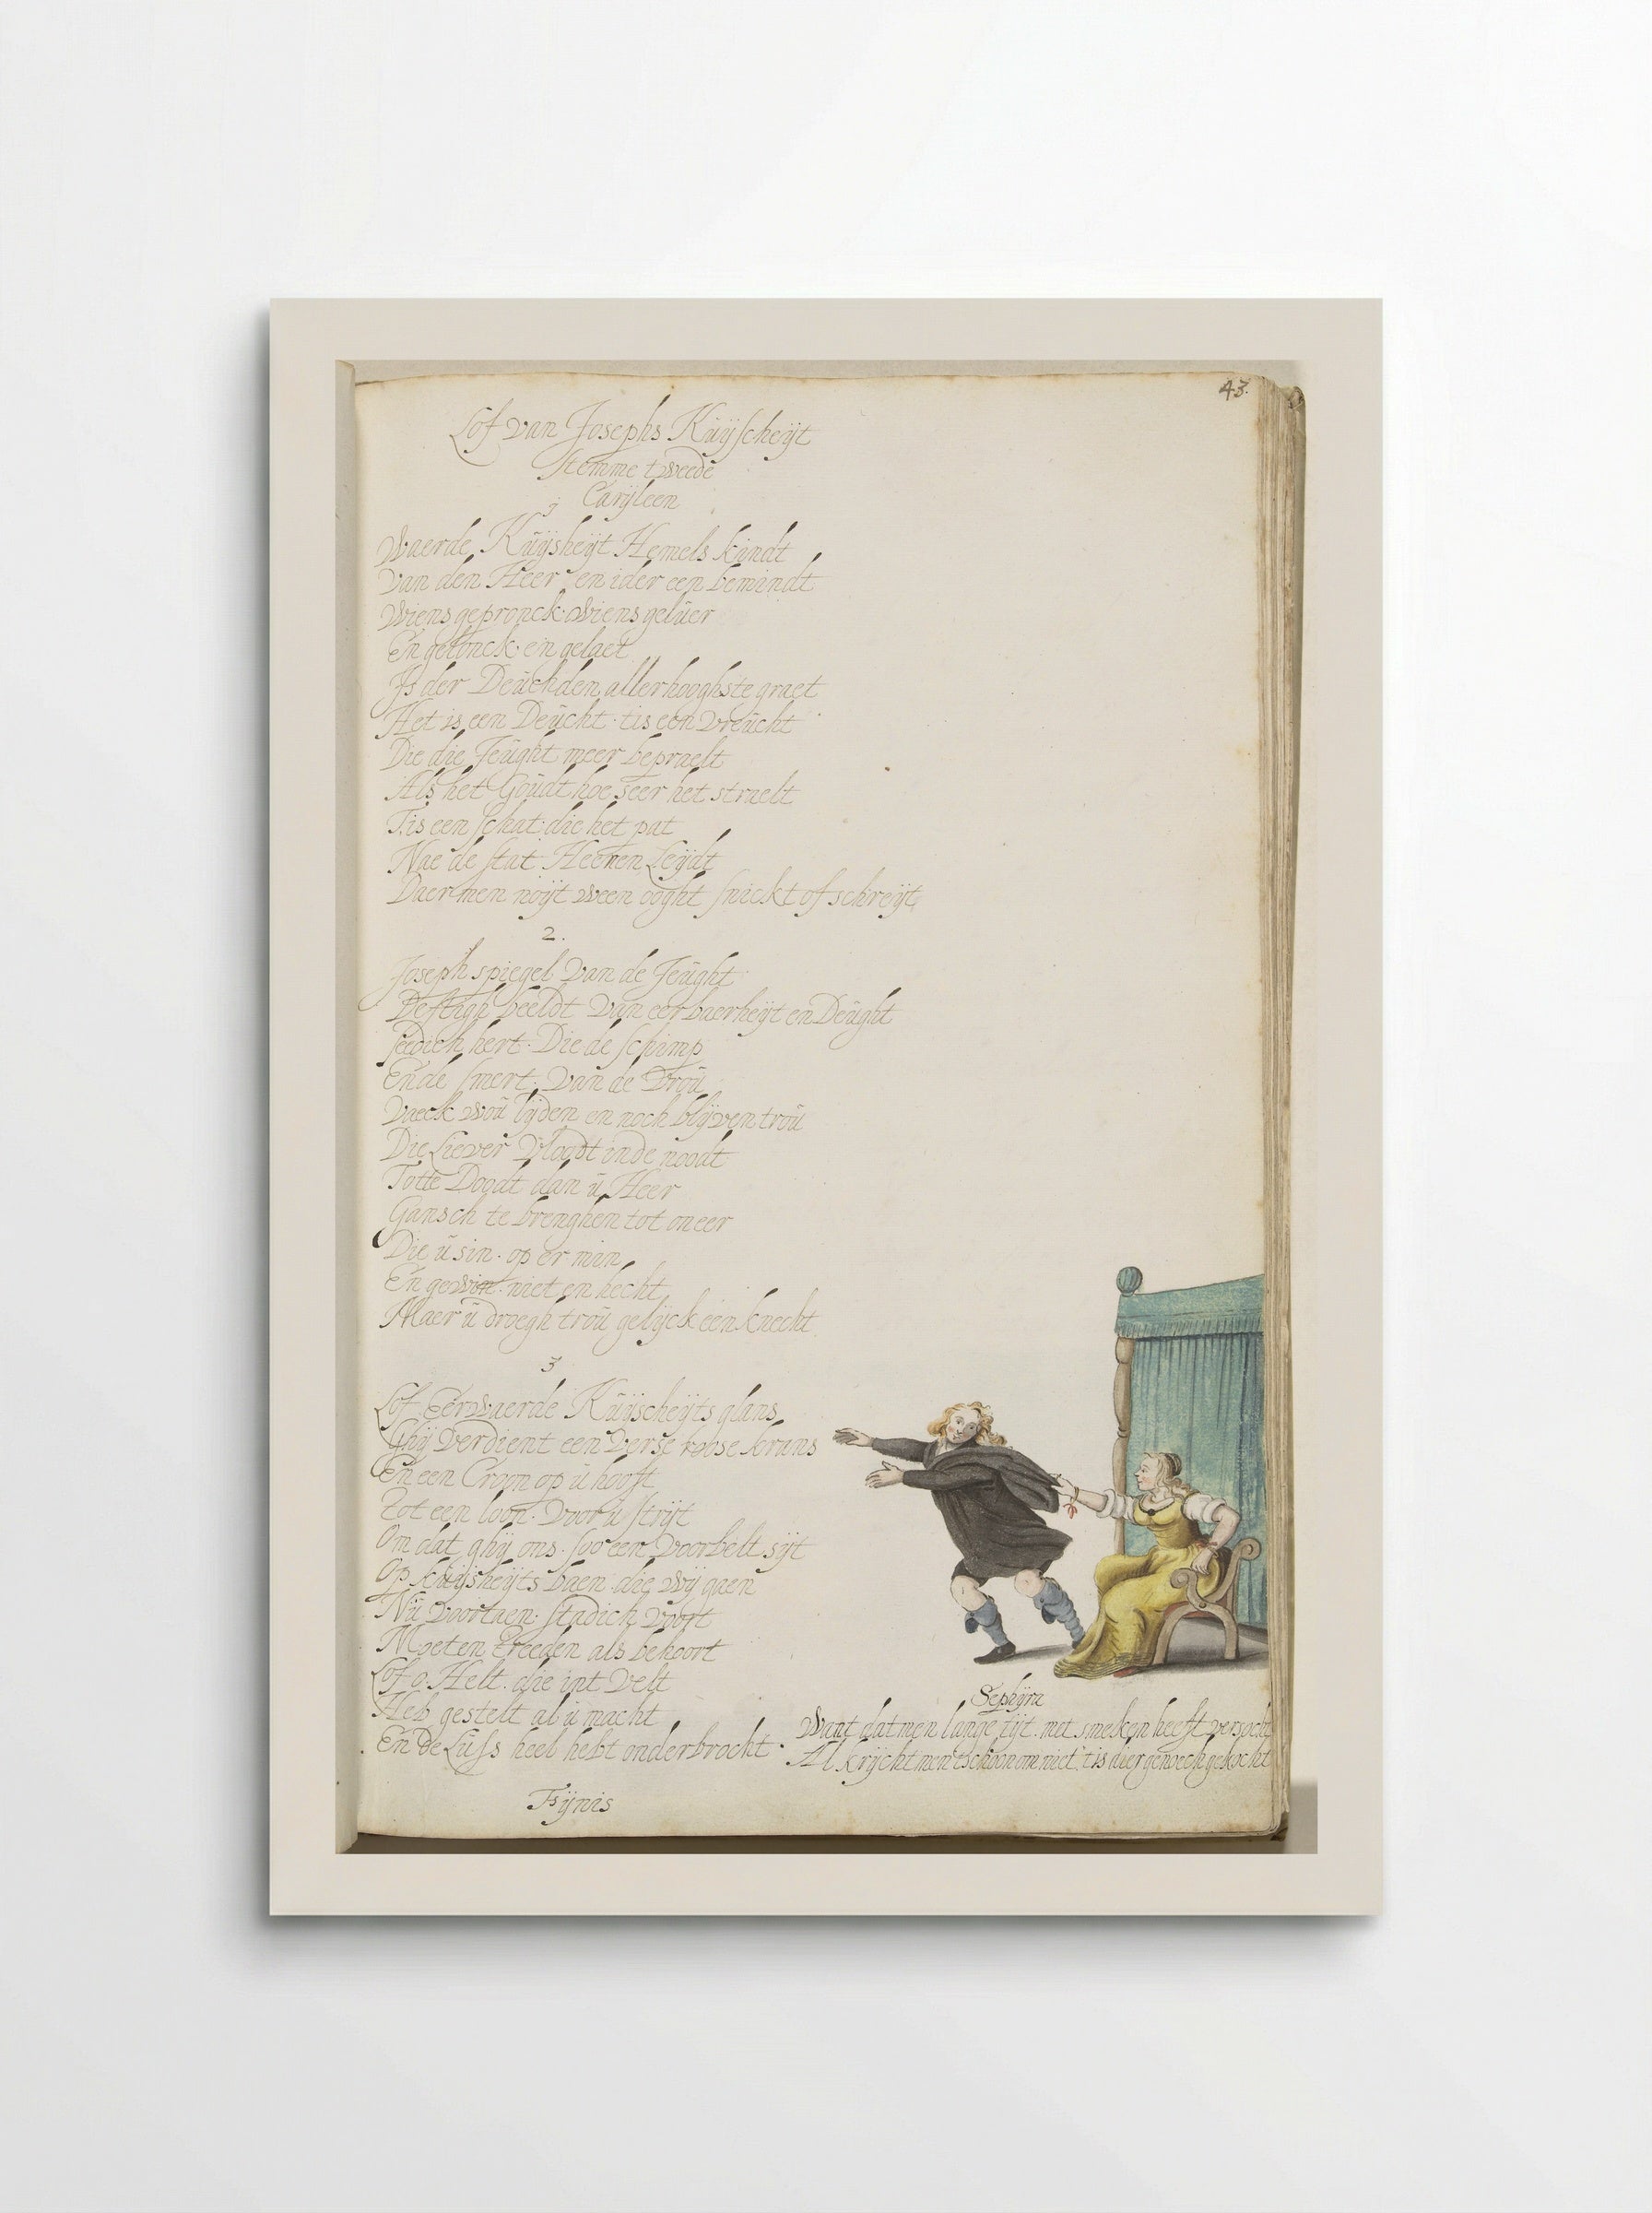 43.
Lof van Josephs Kuÿscheÿt
Stemme tweede
Carÿleen
1
Waerde Kuÿsheÿt Hemels kindt
Van den Heer en ider een bemindt
Wiens gepronck wiens geluer
En gelonck en gelaet
Is der Deuchden allerhooghste graet
Het is een Deucht tis een vreucht
Die die Jeught meer bepraelt
Als het Goudt hoe seer het straelt
Tis een schat die het pat
Nae de stat Heenen Leÿdt
Daermen noÿt ween ooght snickt of schreÿt
2.
Joseph spiegel van de Jeught
Deftigh beeldt van eerbaerheÿt en Deught
seedich hert Die de schimp
Ende smert van de vrou
Vaeck wou lÿden en noch blÿven trou
Die Liever vloodt inde noodt
Totte Doodt dan u Heer
Gansch te brenghen tot oneer
Die u sin op er min
En gewin niet en hecht
Maer u droegh trou gelÿck een knecht
3
Lof Eerwaerde Kuÿscheÿts glans
Ghÿ verdient een verse roose krans
En een Croon op u hooft
Tot een loon voor u strÿt
Om dat ghÿ ons soo een voorbelt sÿt
Op kuÿsheÿts baen die wÿ gaen
Nu voortaen stadich voort
Moeten treeden als behoort
Lof o Helt die int velt
Heb gestelt al u macht
En de Luss heel hebt onderbrocht
Fÿnis
Sephÿra
Want dat men lange tÿt met smeken heeft versocht
Al krÿcht men tschoon om niet tis dier genoech gekocht